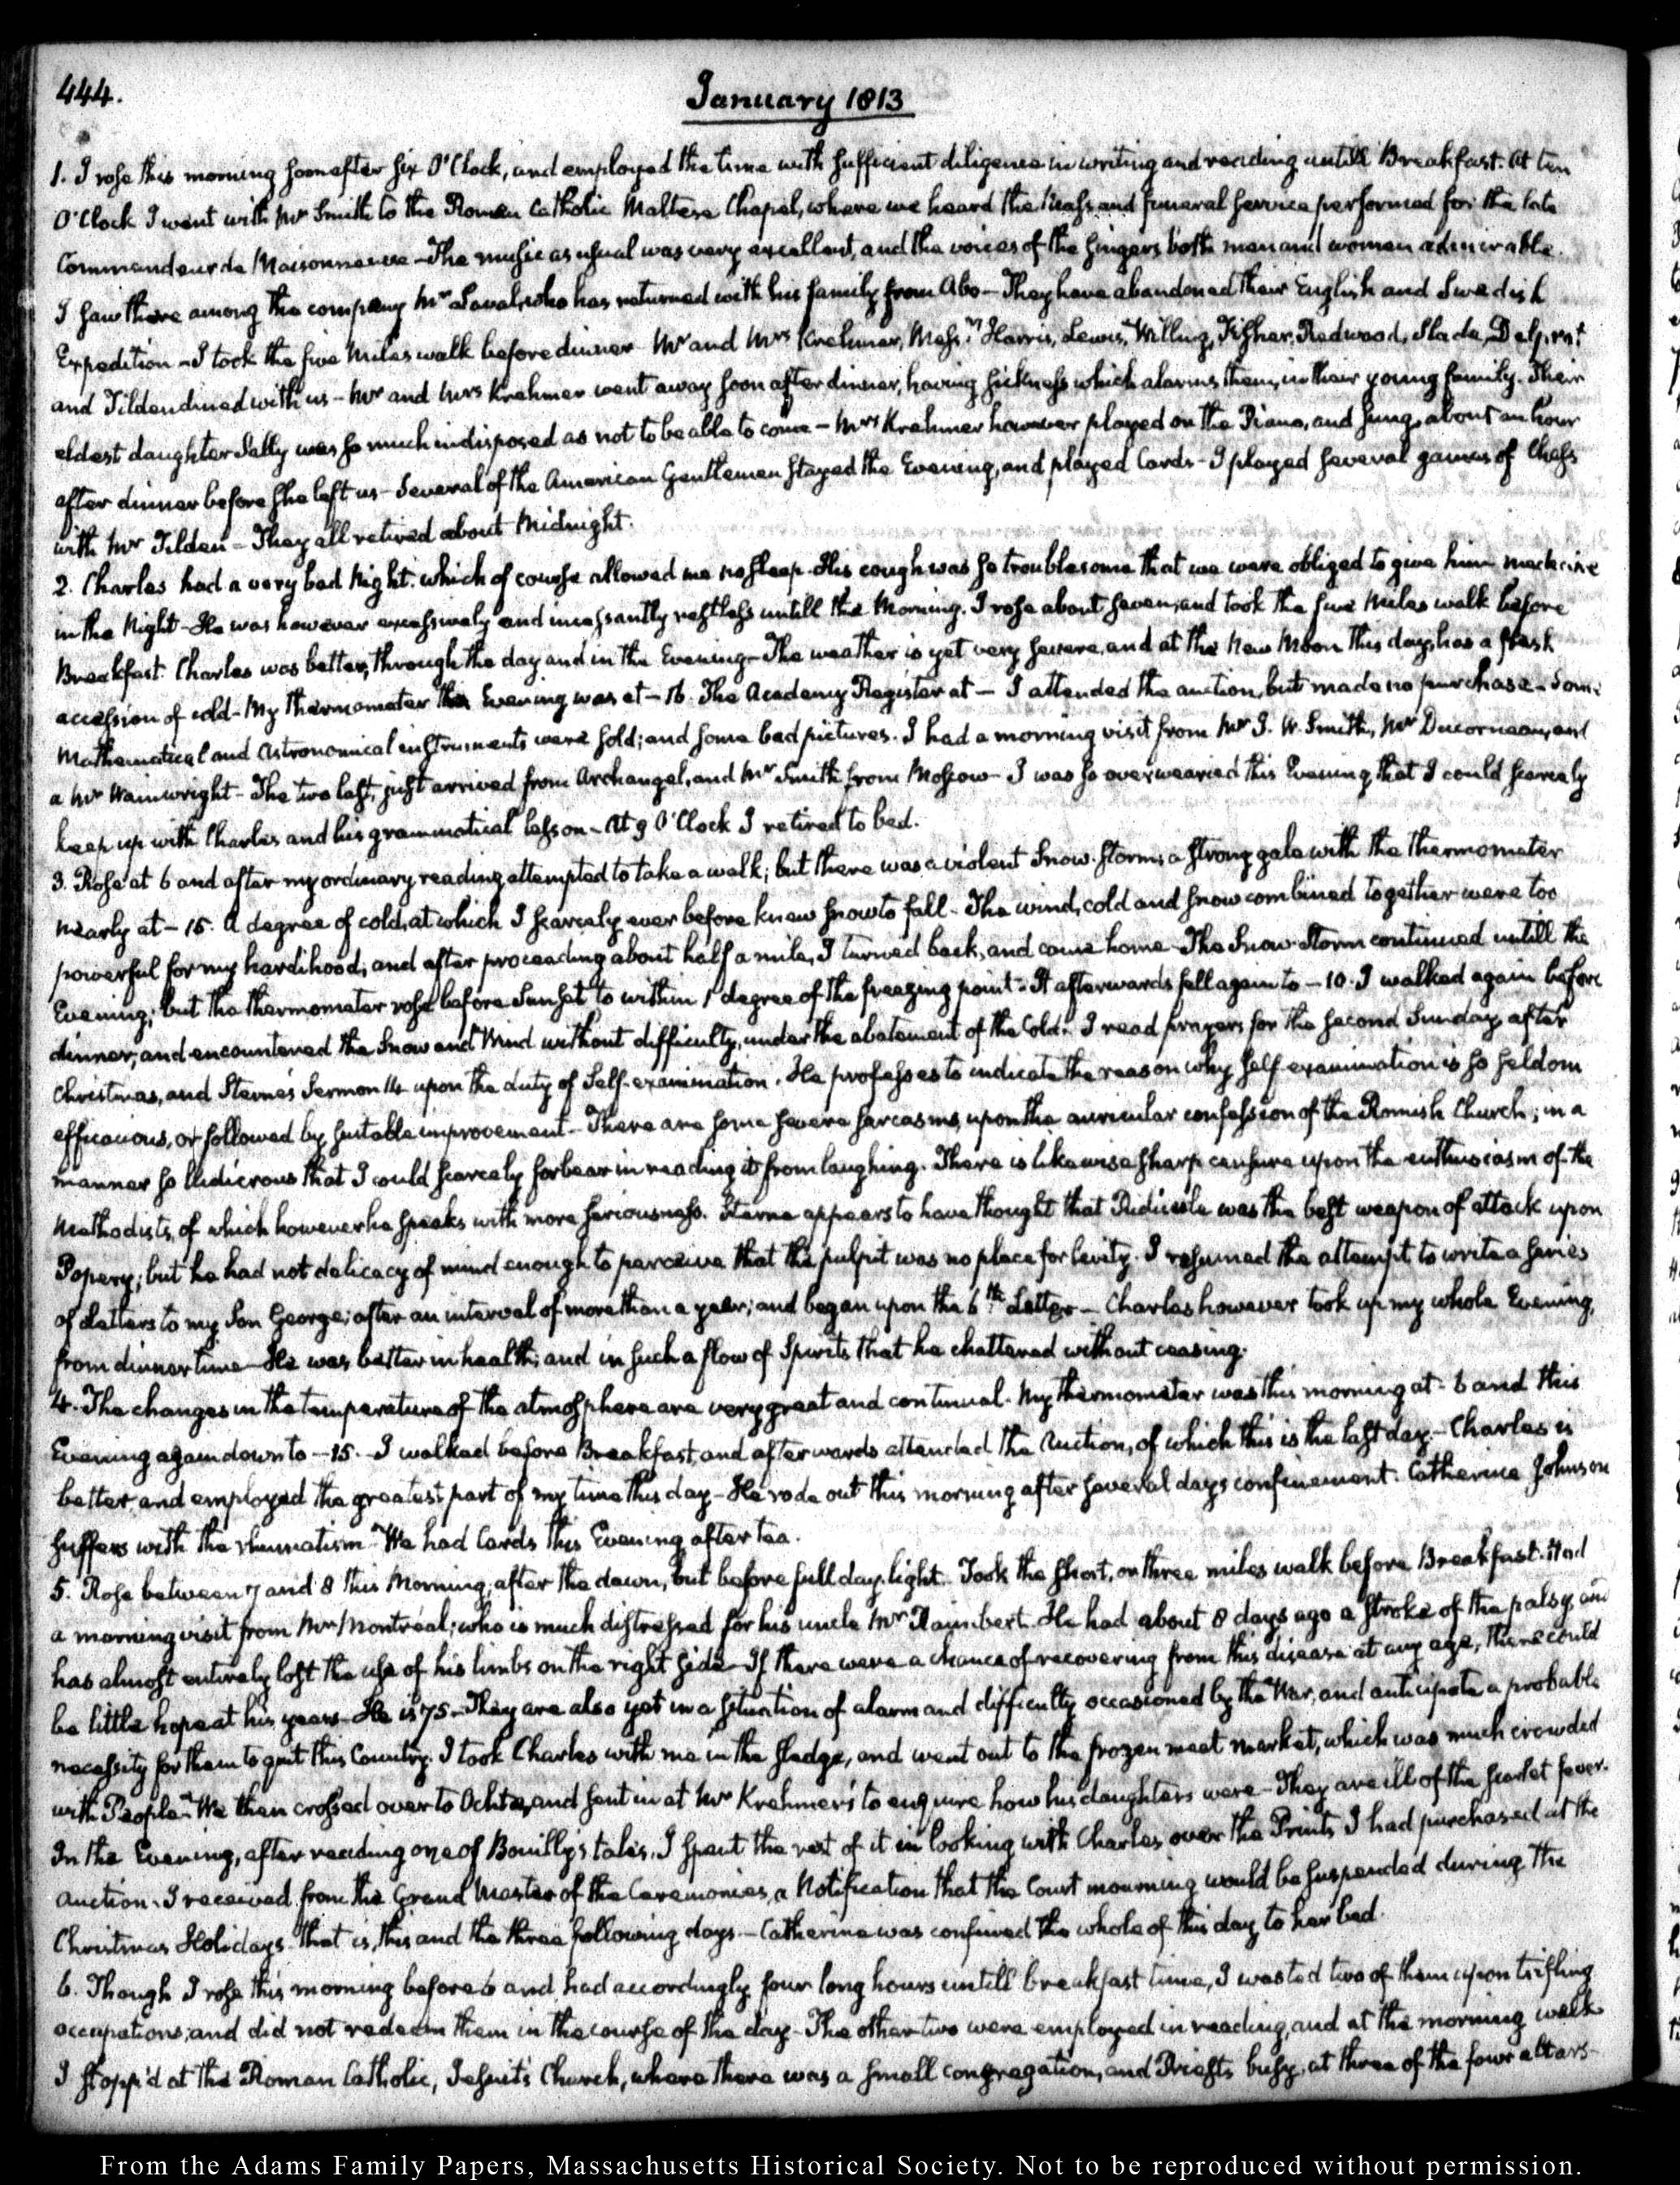 444.
January 1813
1. I rose this morning soon after six O'Clock, and employed the time with sufficient diligence in writing and reading untill Breakfast. At ten
O'Clock I went with Mr Smith to the Roman Catholic Maltese Chapel, where we heard the Mass and funeral service performed for the late
Commandeur de Maisonneuve - The music as usual was very excellent, and the voices of the singers both men and women admirable.
I saw there among the company Mr Laval, who has returned with his family from Abo - They have abandoned their English and Swedish
Expedition - I took the five Miles walk before dinner - Mr and Mrs Krehmer, Messrs Harris, Lewis, Willing, Fisher, Redwood, Slade, Delprat
and Tilden dined with us - Mr and Mrs Krehmer went away soon after dinner, having sickness which alarms them, in their young family. Their
eldest daughter Sally was so much indisposed as not to be able to come - Mrs Krehmer however played on the Piano, and sung, about an hour
after dinner before she left us - Several of the American Gentlemen stayed the Evening, and played Cards - I played several games of Chess
with Mr Tilden - They all retired about Midnight.
2. Charles had a very bad Night. which of course allowed me no sleep. His cough was so troublesome that we were obliged to give him medecine
in the Night - He was however excessively and incessantly restless untill the Morning. I rose about seven, and took the five Miles walk before
Breakfast. Charles was better, through the day and in the Evening - The weather is yet very severe, and at the New Moon this day, has a fresh
accession of cold - My thermometer this Evening was at - 16. The Academy Register at - I attended the auction, but made no purchase - Some
Mathematical and Astronomical instruments were sold; and some bad pictures. I had a morning visit from Mr I. W. Smith, Mr Ducorneau, and
a Mr Wainwright - The two last, just arrived from Archangel, and Mr Smith from Moscow - I was so overwearied this Evening that I could scarcely
keep up with Charles and his grammatical lesson - At 9 O'Clock I retired to bed.
3. Rose at 6 and after my ordinary reading attempted to take a walk; but there was a violent Snow-storm; a strong gale with the thermometer
nearly at - 15. A degree of cold, at which I scarcely ever before knew snow to fall - The wind, cold and snow combined together were too
powerful for my hardihood, and after proceeding about half a mile, I turned back, and came home - The Snow-Storm continued untill the
Evening; but the thermometer rose before Sunset to within 1 degree of the freezing point - It afterwards fell again to - 10. I walked again before
dinner; and encountered the Snow and Wind without difficulty, under the abatement of the Cold. I read prayers for the second Sunday after
Christmas, and Sterne's Sermon 14 upon the duty of Self-examination. He professes to indicate the reason why self-examination is so seldom
efficacious, or followed by suitable improvement - There are some severe sarcasms, upon the auricular confession of the Romish Church; in a
manner so ludicrous that I could scarcely forbear in reading it from laughing. There is likewise sharp censure upon the enthusiasm of the
Methodists, of which however he speaks with more seriousness. Sterne appears to have thought that Ridicule was the best weapon of attack upon
Popery; but he had not delicacy of mind enough to perceive that the pulpit was no place for levity. I resumed the attempt to write a series
of Letters to my Son George; after an interval of more than a year; and began upon the 6th Letter - Charles however took up my whole Evening,
from dinner time - He was better in health; and in such a flow of Spirits that he chattered without ceasing.
4. The changes in the temperature of the atmosphere are very great and continual. My thermometer was this morning at - 6 and this
Evening again down to - 15. I walked before Breakfast, and afterwards attended the Auction, of which this is the last day - Charles is
better and employed the greatest part of my time this day - He rode out this morning after several days confinement. Catherine Johnson
suffers with the rheumatism - We had Cards this Evening after tea.
5. Rose between 7 and 8 this Morning, after the dawn, but before full day-light. Took the short, or three miles walk before Breakfast. Had
a morning visit from Mr Montréal; who is much distressed for his uncle Mr Raimbert. He had about 8 days ago a stroke of the palsy, and
has almost entirely lost the use of his limbs on the right side - If there were a chance of recovering from this disease at any age, there could
be little hope at his years - He is 75 - They are also yet in a situation of alarm and difficulty occasioned by the War; and anticipate a probable
necessity for them to quit this Country. I took Charles with me in the sledge, and went out to the frozen meat market, which was much crowded
with People - We then crossed over to Ochta, and sent in at Mr Krehmer's to enquire how his daughters were - They are ill of the scarlet fever.
In the Evening, after reading one of Bouilly's tales, I spent the rest of it in looking with Charles over the Prints I had purchased at the
auction. I received from the Grand Master of the Ceremonies, a Notification that the Court mourning would be suspended during the
Christmas Holidays. that is, this and the three following days - Catherine was confined the whole of this day to her bed.
6. Though I rose this morning before 6 and had accordingly four long hours untill breakfast time, I wasted two of them upon trifling
occupations; and did not redeem them in the course of the day - The other two were employed in reading, and at the morning walk
I stopp'd at the Roman Catholic, Jesuits Church, where there was a small congregation, and Priests busy, at three of the four altars -
From the Adams Family Papers, Massachusetts Historical Society. Not to be reproduced without permission.